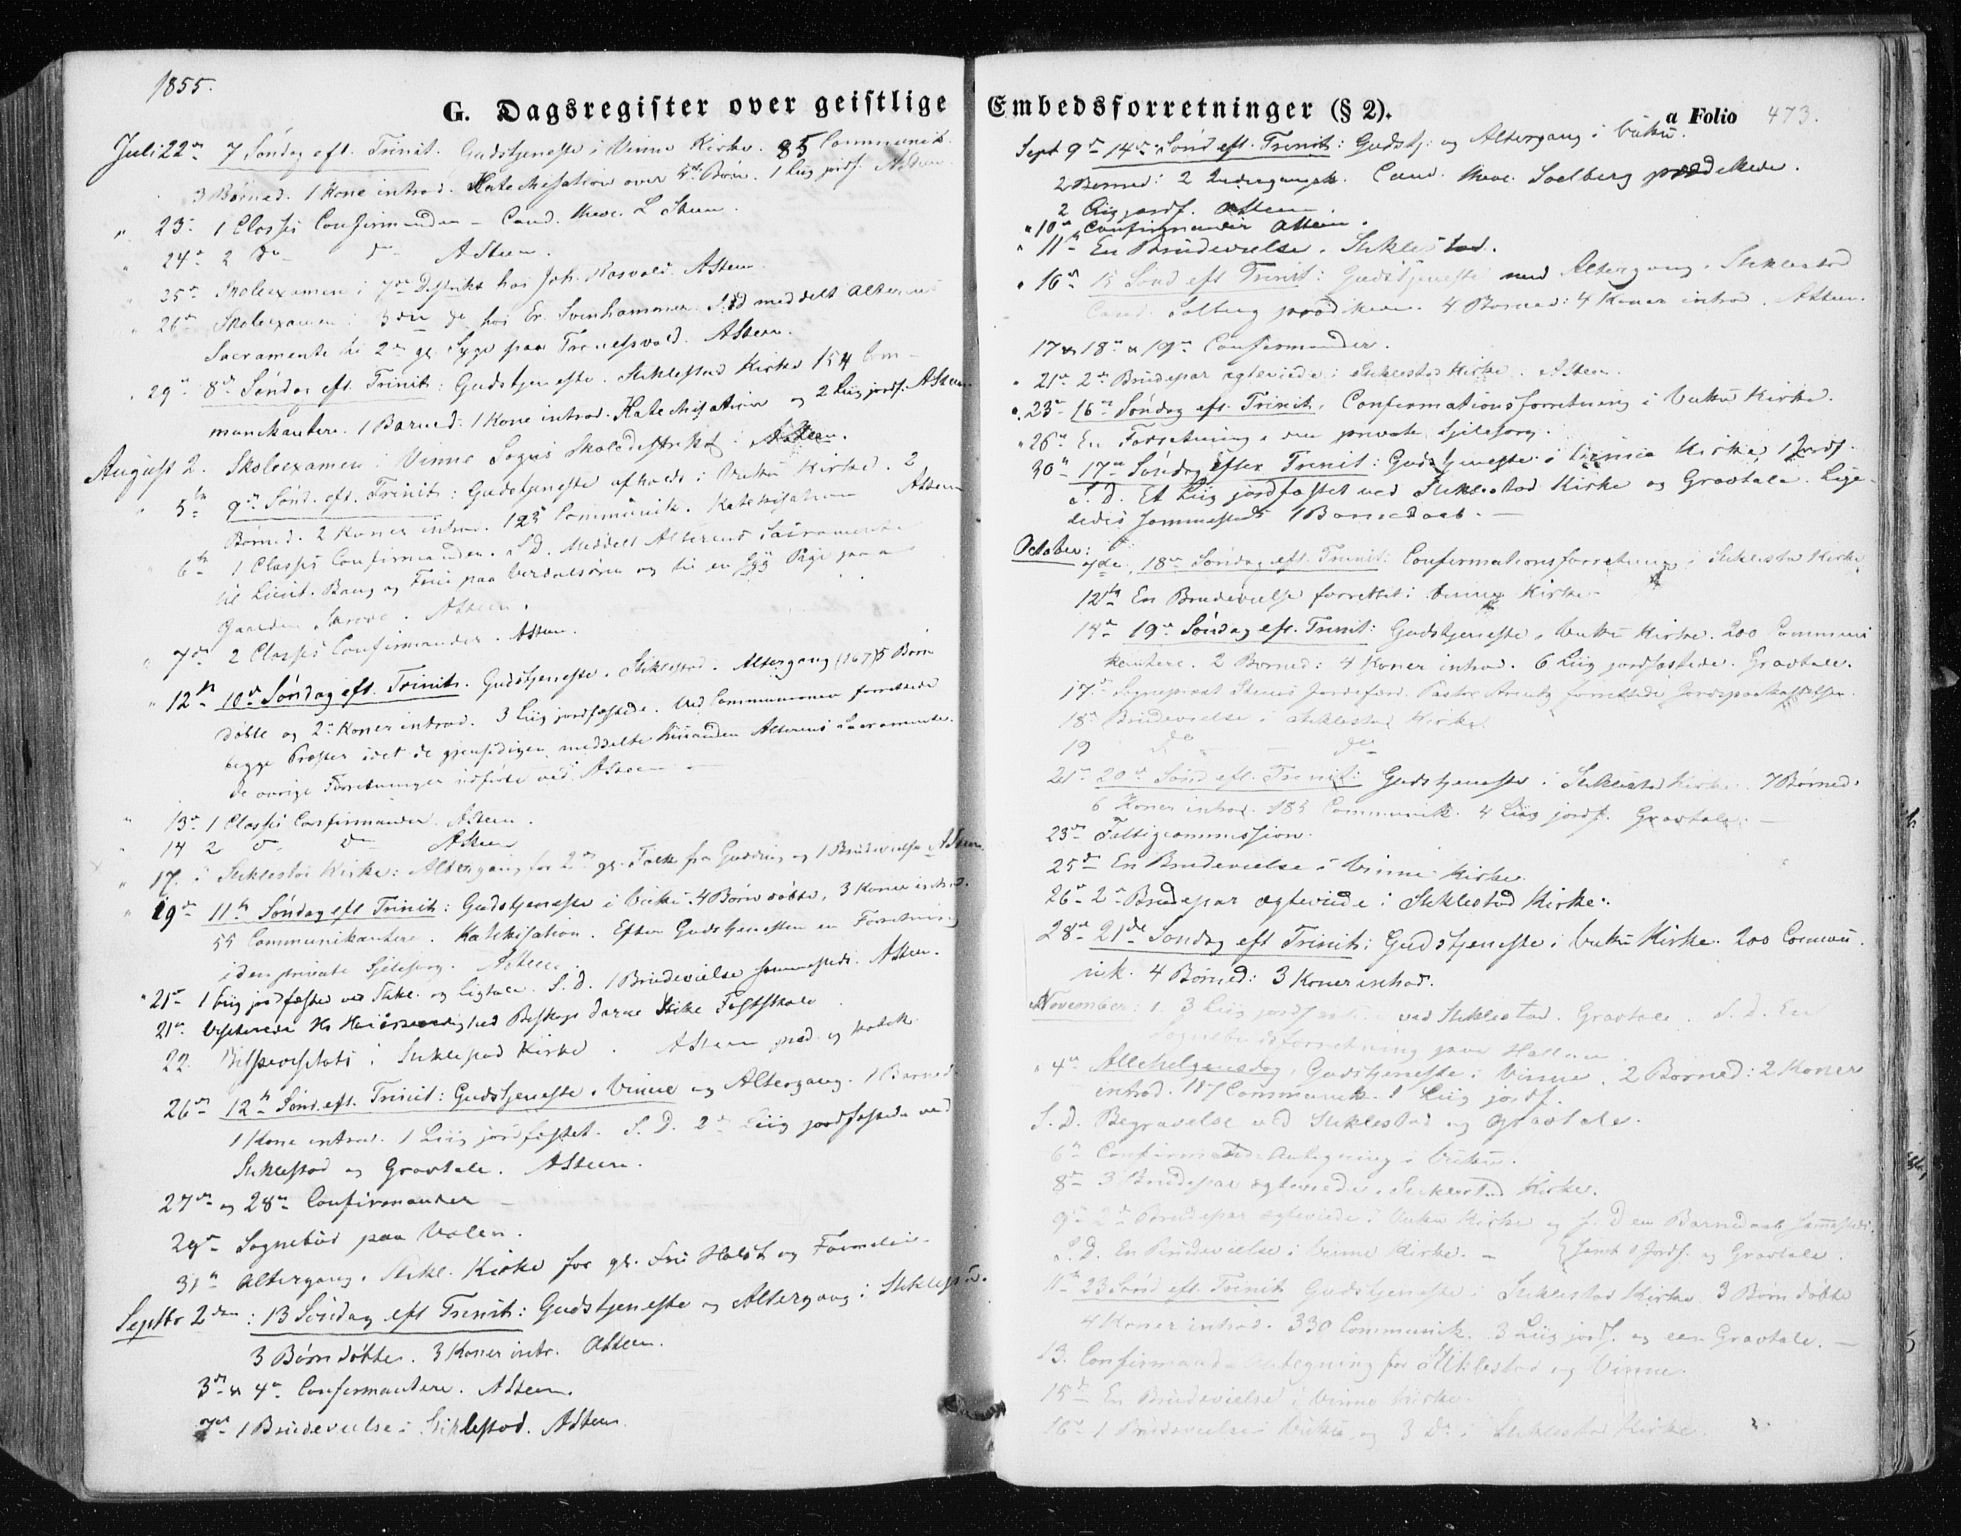 1855.
G. Dagsregister over geistlige Embedsforretninger (§ 2).
a Folio 473.
Juli 22de 7 Søndag eft. Trinit. Gudstjeneste i Vinne Kirke. 85 Communik.
3 Børned. 1 Kone introd. Katechisation over Børn. 1 Liig jordf. ASteen.
" 23. 1 Classes Confirmander – Cand. theol. Steen.
" 24de 2 do – do ASteen.
" 25de Skoleexamen i 7de Distrikt hos Joh. Rosvold. ASteen.
" 26de Skoleexamen i 3die do hos Er. Svinhammer. S.D. meddelt Alterens
Sacramente til 2de gl. Syge paa ASteen.
" 29de 8de Søndag eft. Trinit: Gudstjeneste i Stiklestad Kirke 154 Com-
munikantere. 1 Barned: 1 Kone introd. Katechisation og 2 Liig jordf. ASteen
August 2. Skoleexamen i Vinne Sogns Skoledistrikt. ASteen.
" 5te 9de Sønd. eft. Trinit: Gudstjeneste afholdt i Vuku Kirke. 2
Børned. 2 Koner introd. 125 Communik. Katechisation ASteen
" 6te 1 Classes Confirmander. S.D. Meddelt Alterens Sacramente
til Lieut. Bang og Frue paa Verdalsøren og til en Syg Pige paa
Gaarden . ASteen.
" 7de 2 Classes Confirmander. ASteen.
" 12te 10de Søndag eft. Trinit. Gudstjeneste i Stiklestad. Altergang (167) 5 Børn
døbte og 2de Koner introd. 3 Liig jordfæstede. Ved Communionen forrettede
begge Præster idet de gjensidigen meddelte hinanden Alterens Sacramente.
De øvrige Forretninger udførte ved ASteen –
" 13de 1 Classes Confirmander. ASteen.
" 14 2 do do ASteen
" 17. i Stiklestad Kirke: Altergang for 2de gl. Folk fra og 1 Brudevielse ASteen.
" 19de 11te Søndag eft Trinit: Gudstjeneste i Vuku. 4 Børn døbte, 3 Koner introd.
55 Communikantere. Katekisation. Efter Gudstjenesten en Forretning
i den private Sjelesorg. ASteen.
" 21de 1 Liig jordfæstet ved Stikl. og Ligtale. S.D. 1 Brudevielse sammesteds. ASteen.
21de Hs Høiærværdighed Biskop Stikl. Fastskole
22. Bispevisitats i Stiklestad Kirke. ASteen præd. og katek.
26de 12te Sønd. eft. Trinit: Gudstjeneste i Vinne og Altergang. 1 Barned
1 Kone introd. 1 Liig jordfæstet. S.D. 2de Liig jordfæstede ved
Stiklestad og Gravtale. ASteen.
27de og 28de Confirmander –
29de Sognebud paa Valen.
31te Altergang i Stikl. Kirke for gl. Fru Holst og Familie.
Septbr 2den: 13 Søndag eft Trinit: Gudstjeneste og Altergang i Stiklestad.
3 Børn døbte. 3 Koner intr. ASteen.
3de & 4de Confirmantere. ASteen.
7de 1 Brudevielse i Stiklestad. ASteen
Sept 9de 14de Sønd eft. Trinit: Gudstj. og Altergang i Vuku.
2 Børned: 2 . Cand. theol. Soelberg prædikede.
2 Liig jordf. ASteen.
" 10de Confirmander ASteen.
" 11te En Brudevielse i Stiklestad.
" 16de 15 Sønd eft Trinit: Gudstjeneste med Altergang i Stiklestad
Cand. Solberg prædikede. 4 Børned: 4 Koner introd. ASteen.
17de 18de & 19de Confirmander.
" 21de 2de Brudepar ægteviede i Stiklestad Kirke. ASteen.
" 23de 16de Søndag eft. Trinit. Confirmationsforretning i Vuku Kirke.
" 26de En Forretning i den private Sjelesorg.
30te 17de Søndag efter Trinit: Gudstjeneste i Vinne Kirke 1 Jordf.
S.D. Et Liig jordfæstet ved Stiklestad Kirke og Gravtale. Lige-
ledes sammesteds 1 Barnedaab. –
October: 7de. 18de Søndag eft. Trinit: Confirmationsforretning i Stiklestad Kirke
12te En Brudevielse forrettet i Vinne Kirke –
14de 19de Søndag eft. Trinit: Gudstjeneste i Vuku Kirke. 200 Communi
kantere. 2 Børned: 4 Koner introd. 6 Liig jordfæstede. Gravtale.
17de Sogneprest Steens Jordefærd. Pastor Arentz forrettede Jordspaakastelsen.
18de Brudevielse i Stiklestad Kirke
19 do do
21de 20de Sønd eft. Trinit: Gudstjeneste i Stiklestad Kirke. 7 Børned:
6 Koner introd. 185 Communik. 4 Liig jordf. Gravtale. –
23de Fattigcommission.
25de En Brudevielse i Vinne Kirke.
26de 2de Brudepar ægteviede i Stiklestad Kirke.
28de 21de Søndag eft Trinit: Gudstjeneste i Vuku Kirke. 200 Commu
nik. 4 Børned: 3 Koner introd.
November: 1. 3 Liig jordfæstet ved Stiklestad. Gravtale. S.D. En
Sognebudsforretning paa Hallem.
" 4de Allehelgensdag. Gudstjeneste i Vinne. 2 Børned: 2 Koner
introd. 187 Communik. 1 Liig jordf.
S.D. Begravelse ved Stiklestad og Gravtale.
6te Confirmand-Antegning i Vuku.
8de 3 Brudepar ægteviede i Stiklestad Kirke.
9de 2de Brudepar ægteviede i Vuku Kirke og s. D en Barnedaab sammesteds.
S.D. En Brudevielse i Vinne Kirke. – samt 1 Jordf. og Gravtale.
11te 23 Sønd eft. Trinit. Gudstjeneste i Stiklestad Kirke. 3 Børn døbte
4 Koner introd. 330 Communik. 3 Liig jordf. og een Gravtale. –
13. Confirmand-Antegning for Stiklestad og Vinne.
15de En Brudevielse i Vinne Kirke.
16de 1 Brudevielse i Vuku og 3 Do i Stiklestad Kirke.